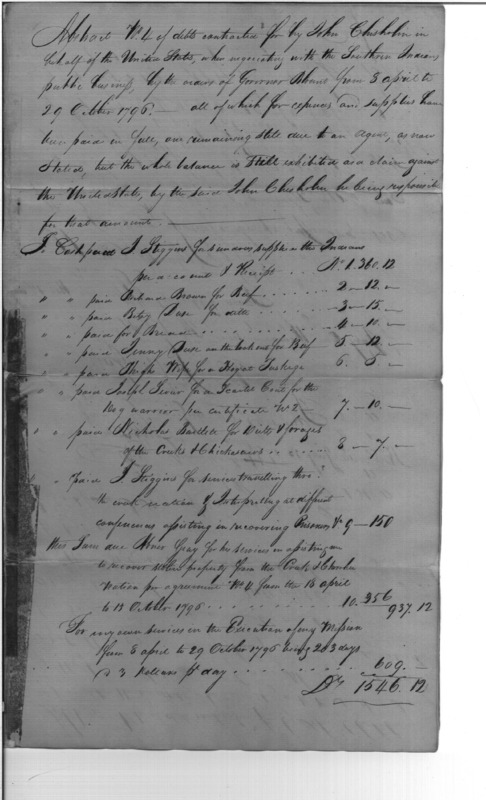 Abstract No. 4 of debts contracted for by John Chisholm in
behalf of the United States, when negociating with the Southern Indians
public business, by the orders of Governor Blount from 3 april to
29 October 1796. — all of which for expences and supplies have
been paid in full, one remaining still due to an agent, as now
stated, but the whole balance is still exhibited as a claim against
the United States, by the said John Chisholm he being responsible
for that amount.
To Cash paid J Stiggins for sundrys supplies to the Indians
per account & Receipt . . . No 1. 360. 12
" " paid Richard Brown for Beef . . . 2 — 12. —
" " paid Betsy for ditto . . . 3 — 15. —
" " paid for Bread . . . 4 — 10. —
" " paid Jenny for Beef 5 — 12 —
" " paid Wife for a Hog at Tuskega 6. 5 —
" " paid Joseph for a Scarlet Coat for the
warrior per certificate No 2 — 7. — 10. —
" " paid Nicholas for Diets & forages
of the Creeks & Chickasaws . . . 8 — 7. —
" " Paid J Stiggins for services travelling thro'
the creek nation & Interpreting at different
conferences assisting in recovering Prisoners &c 9 — 150
this Sum due Gray for his services in assisting me
to recover property from the Creek
Nation per agreement No 11 from the 13 april
to 13 October 1796 . . . 10. 356
937. 12
For my own services in the Execution of my Mission
from 3 april to 29 October 1796 being 203 days
@ 3 Dollars pr day . . . 609. —
Drs 1546. 12